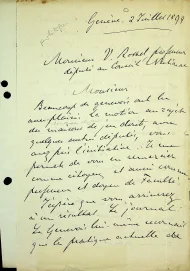 Genève, 2 Juillet 1899
Monsieur V. Rossel professeur
député au Conseil National
Monsieur
Beaucoup de genevois ont lu
avec plaisir la motion au sujet
des maisons de jeu dont, avec
quelques autres députés, vous
avez pris l'initiative. Je me
permets de vous en remercier
comme citoyen, et aussi comme
professeur et doyen de Faculté.
J'espère que vous arriverez
à un résultat. Le journal
Le Genevois lui même reconnaît
que la pratique actuelle des